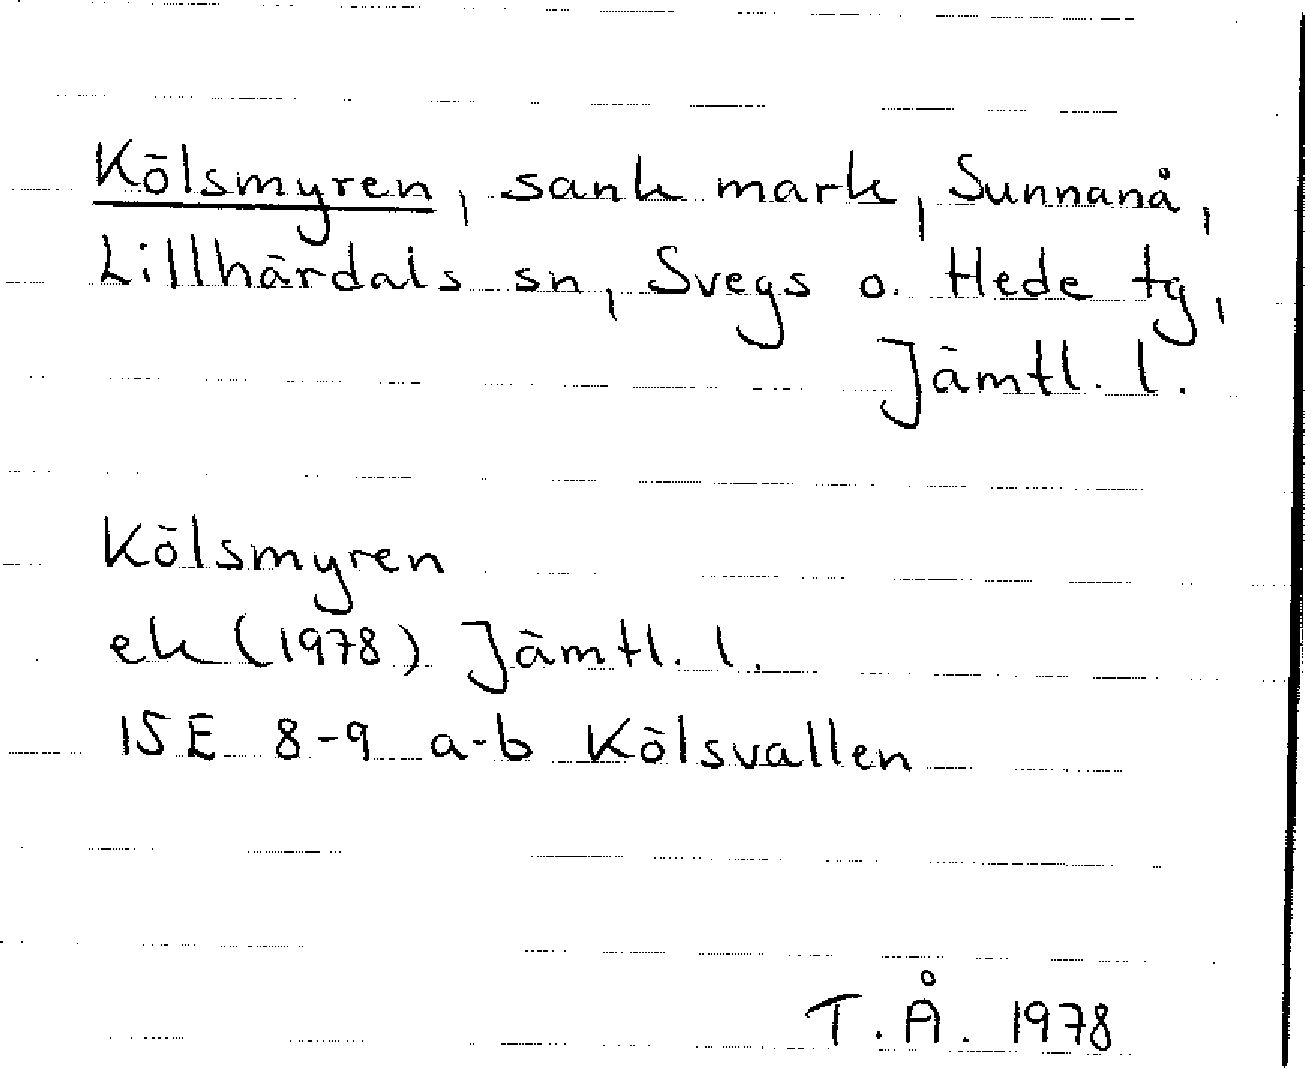 Kölsmyren, sank mark, Sunnanå,
Lillhärdals sn, Svegs o. Hede tg,
Jämtl. l.
Kölsmyren
ek (1978) Jämtl. l.
15 E 8-9 a-b Kölsvallen
T. Å. 1978